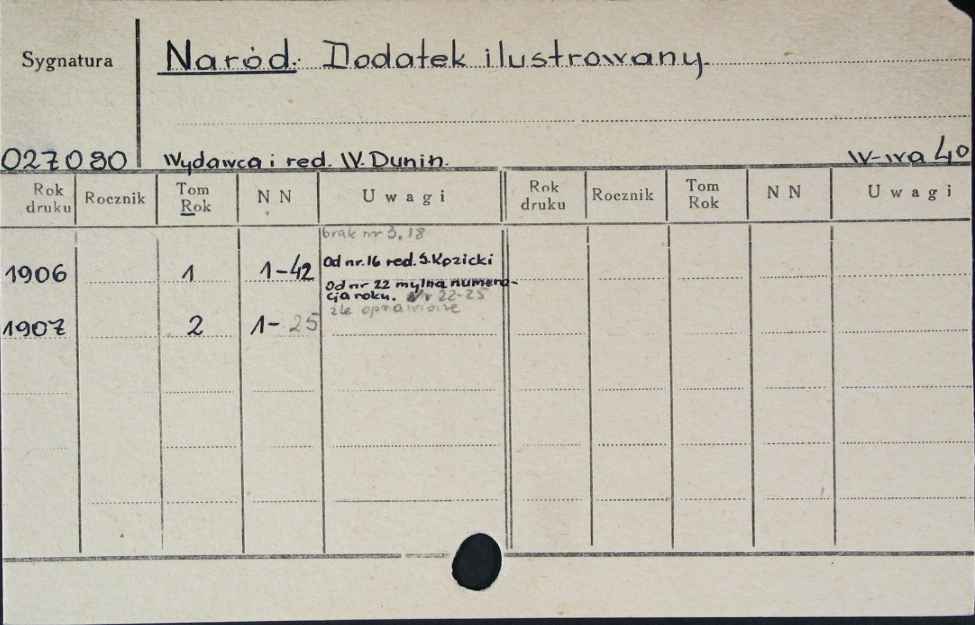 Sygnatura
Naród. Dodatek ilustrowany.
027080
Wydawca i red. W. Dunin.
W-wa 40
Rok druku Rocznik Tom Rok N N Uwagi Rok druku Rocznik Tom Rok N N Uwagi
brak nr 3, 18
1906 1 1-42 Od nr. 16 red. S. Kozicki
Od nr 22 mylna numera-
cja roku. Nr 22-25
źle oprawione
1907 2 1-25